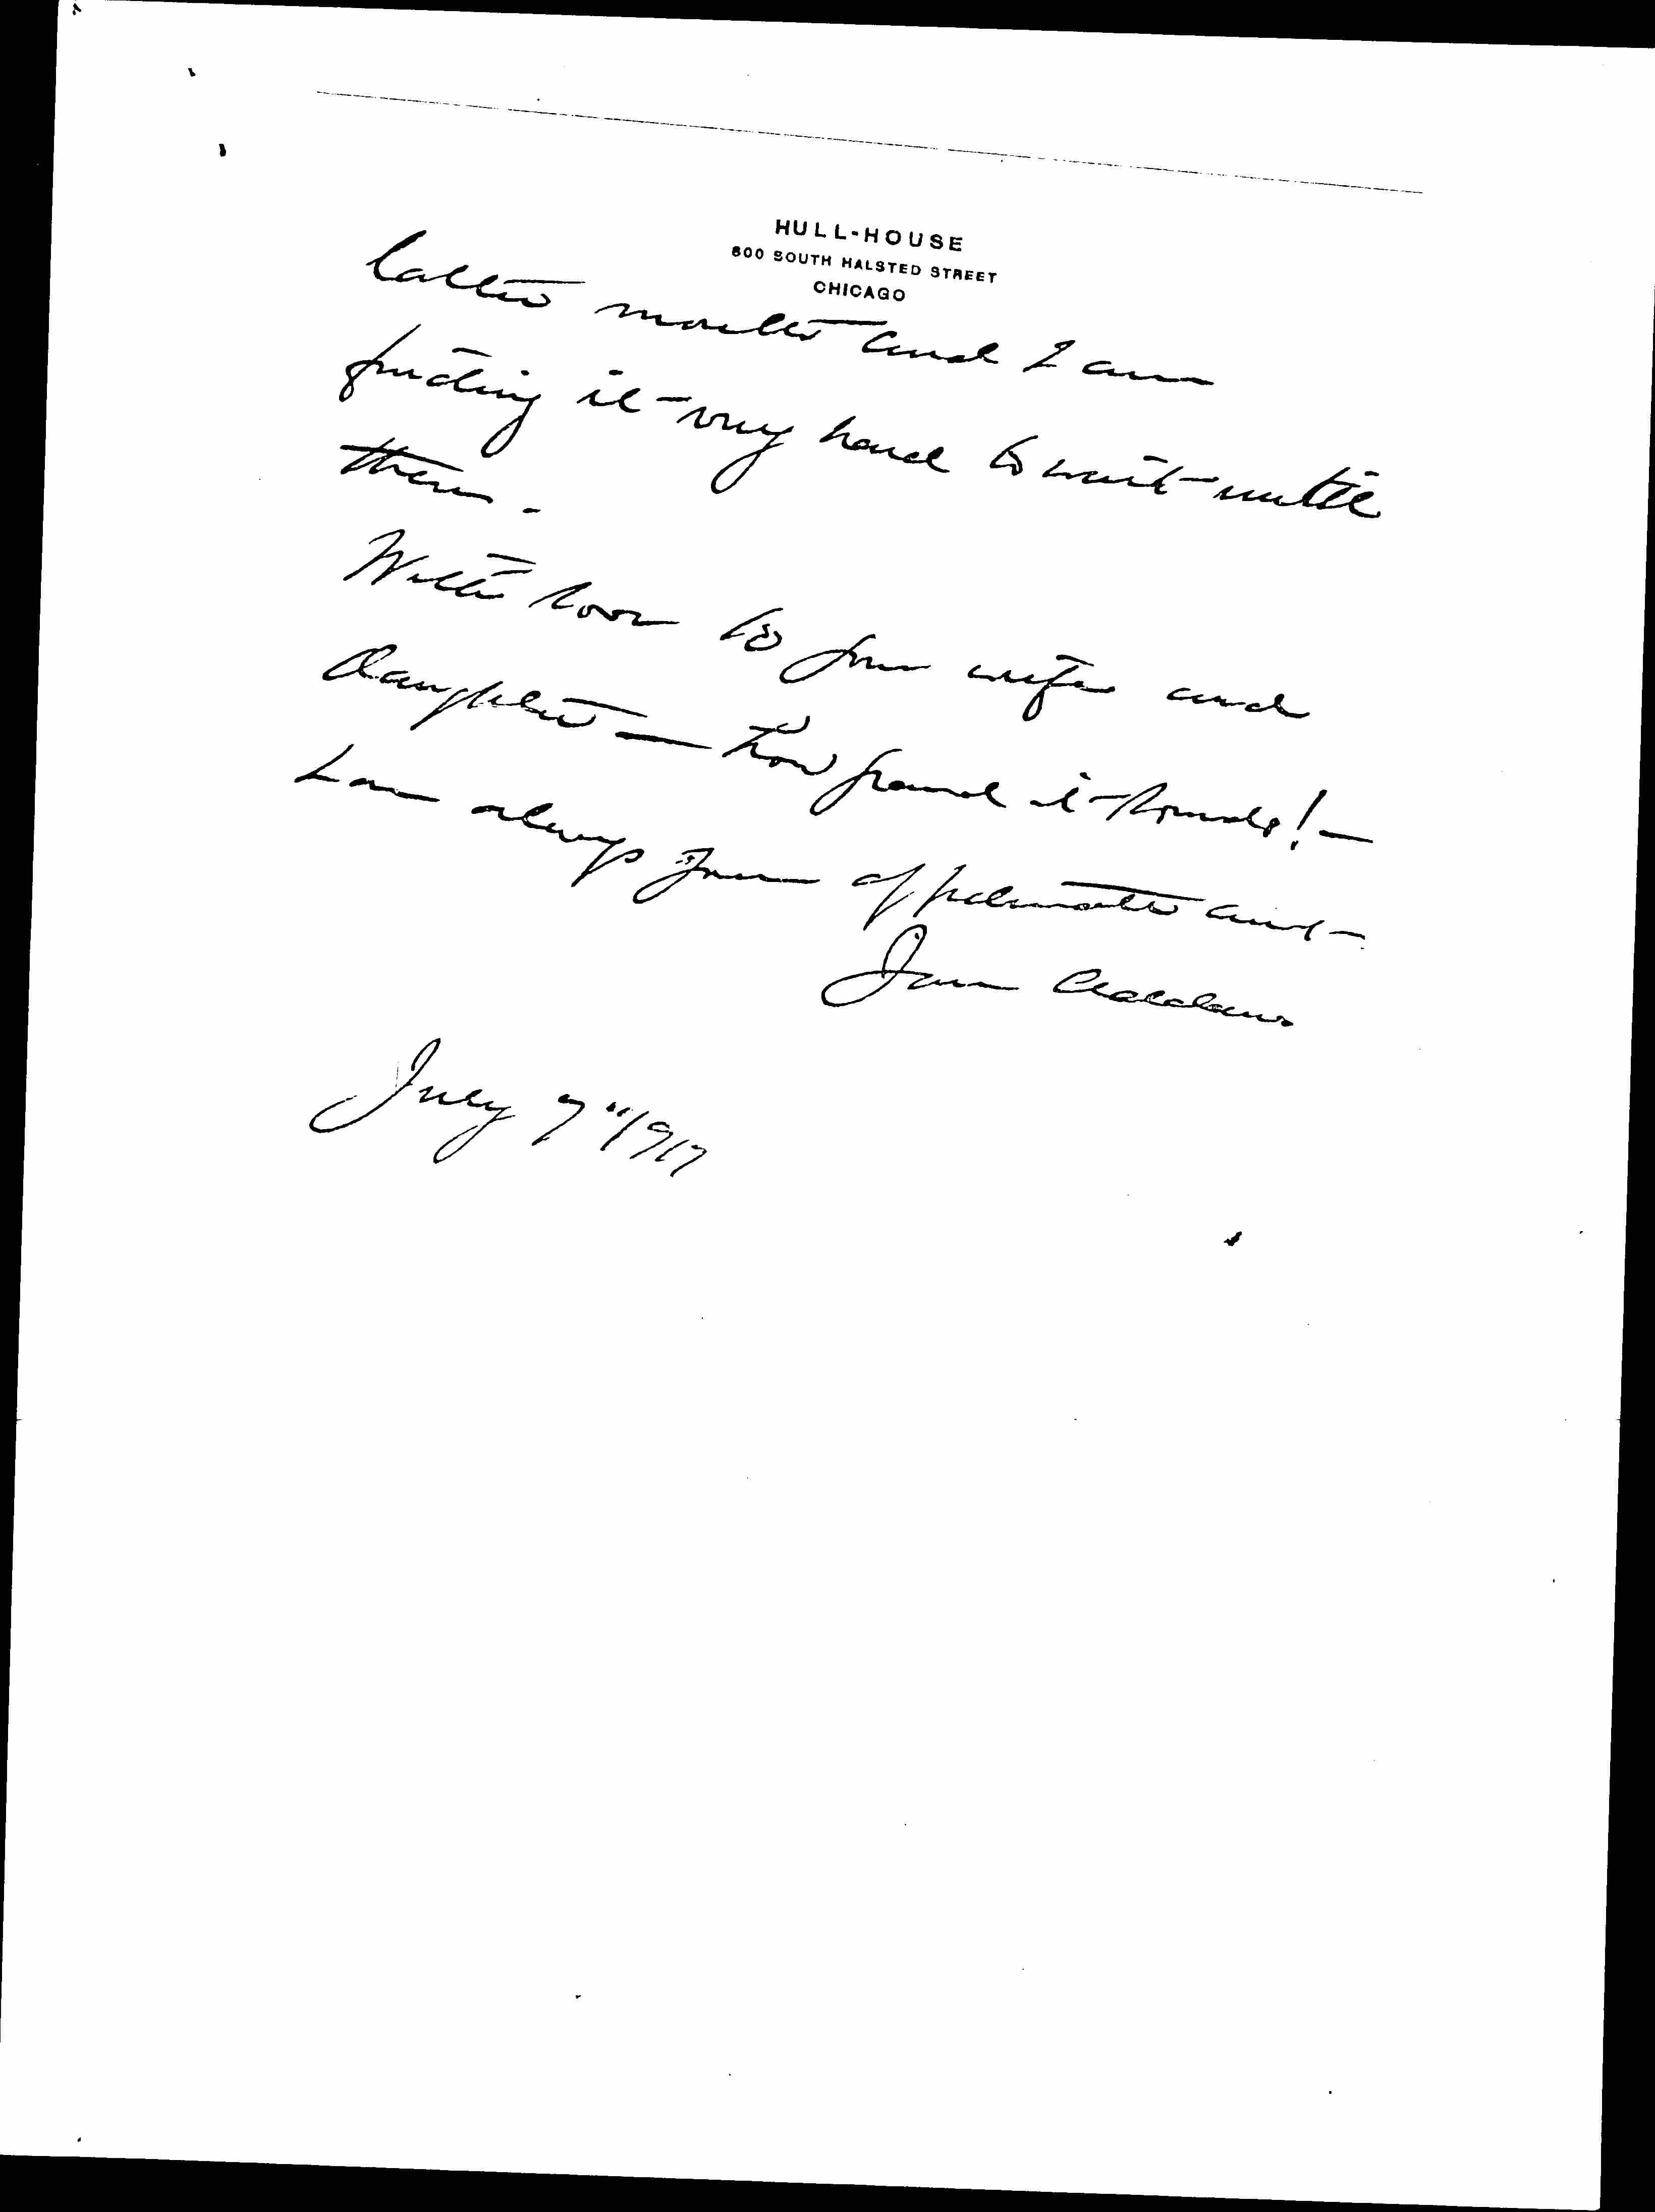 HULL-HOUSE
800 SOUTH HALSTED STREET
CHICAGO
latter month and I am
finding it very hard to wait until
then.
With love to your wife and
daughter — how grand it sounds! —
I am always your affectionate aunt
Jane Addams
July 7" 1917